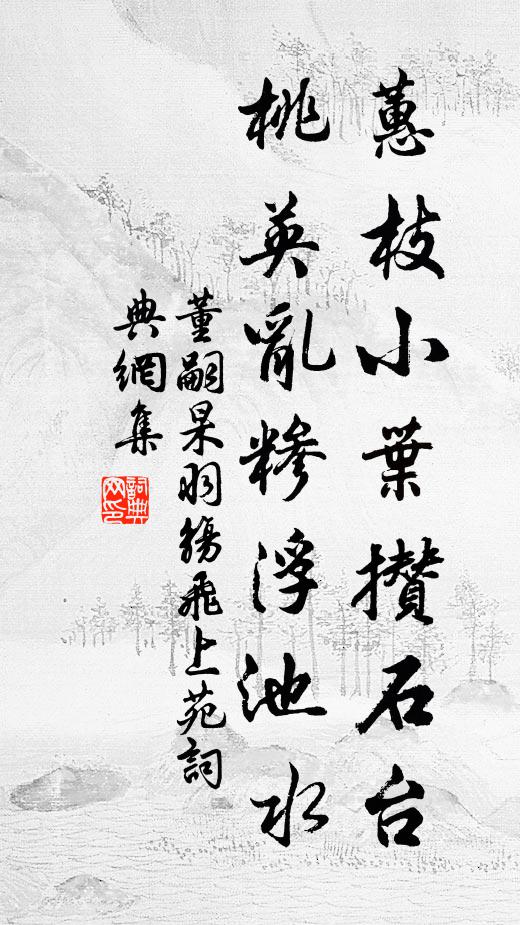 蕙枝小葉攢石台
桃英亂糝浮池水
董嗣杲羽觴飛上苑詞
典網集
詞典網印